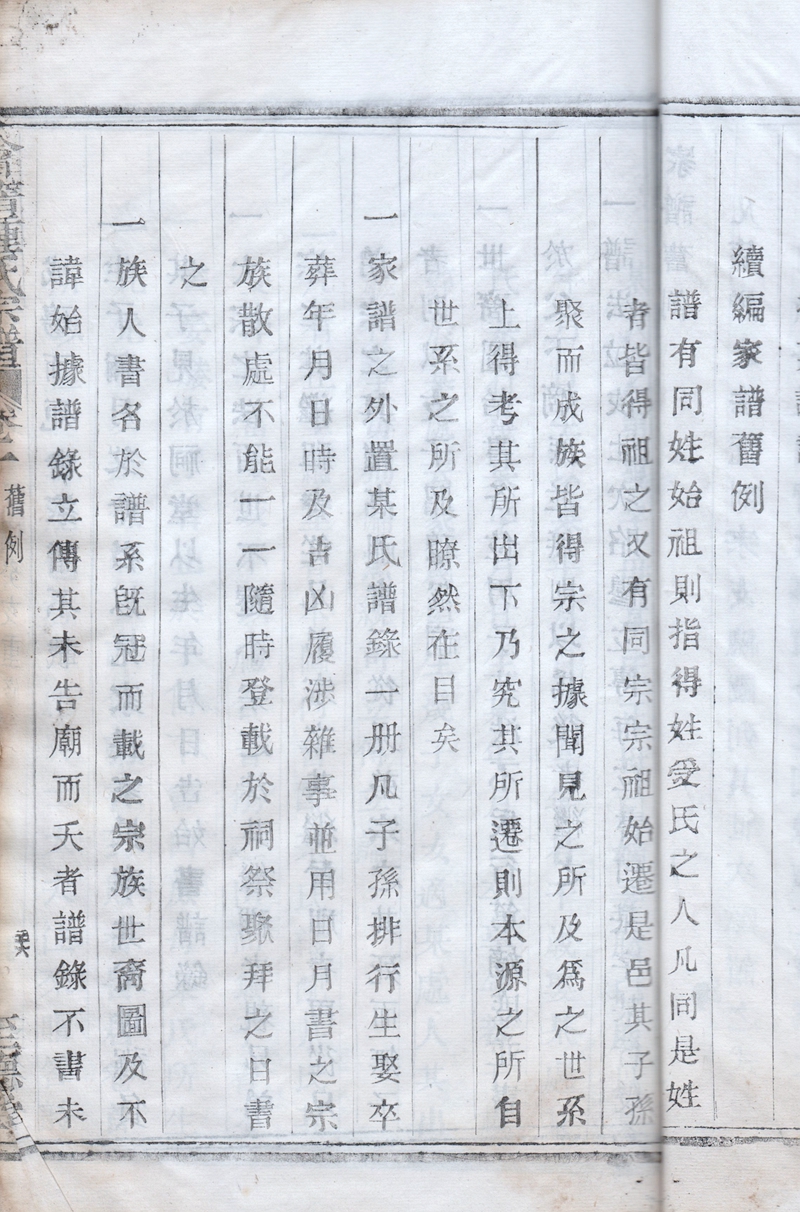 續編家譜舊例
譜有同姓始祖則指得姓受氏之人凡同是姓
者皆得祖之又有同宗宗祖始遷是邑其子孫
聚而成族皆得宗之據聞見之所及爲之世系
上得考其所出下乃究其所遷則本源之所自
世系之所及瞭然在目矣
一家譜之外置某氏譜錄一册凡子孫排行生娶卒
葬年月日時及吉凶履涉雜事並用日月書之宗
族散處不能一一隨時登載於祠祭聚拜之日書
之
一族人書名於譜系旣冠而載之宗族世裔圖及不
諱始據譜錄立傳其未告廟而夭者譜錄不書未
氏宗譜
舊例